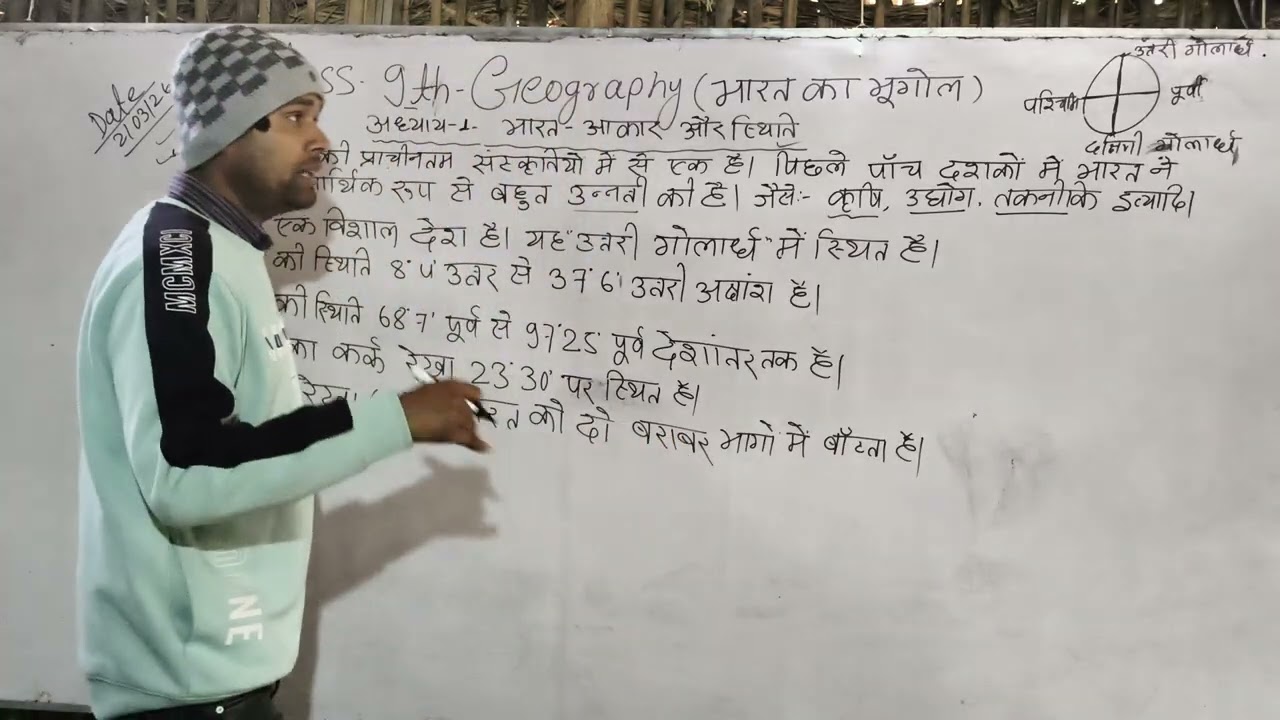 Date
2103/26
SS. 9th- Geography (भारत का भूगोल)
अध्याय-1- भारत- आकार और स्थिति
की प्राचीनतम संस्कृतियों में से एक है। पिछले पाँच दशकों में भारत ने
आर्थिक रूप से बहुत उन्नती की है। जैसे:- कृषि, उद्योग, तकनीकि इत्यादि।
एक विशाल देश है। यह "उत्तरी गोलार्ध" में स्थित है।
की स्थिति 8°4' उत्तर से 37°6' उत्तरी अक्षांश है।
की स्थिति 68°7' पूर्व से 97°25' पूर्व देशांतर तक है।
का कर्क रेखा 23°30' पर स्थित है।
रेखा को दो बराबर भागों में बाँटता है।
उत्तरी गोलार्ध.
पश्चिमी
पूर्वी
दक्षिणी गोलार्ध
MCMXCI
NE